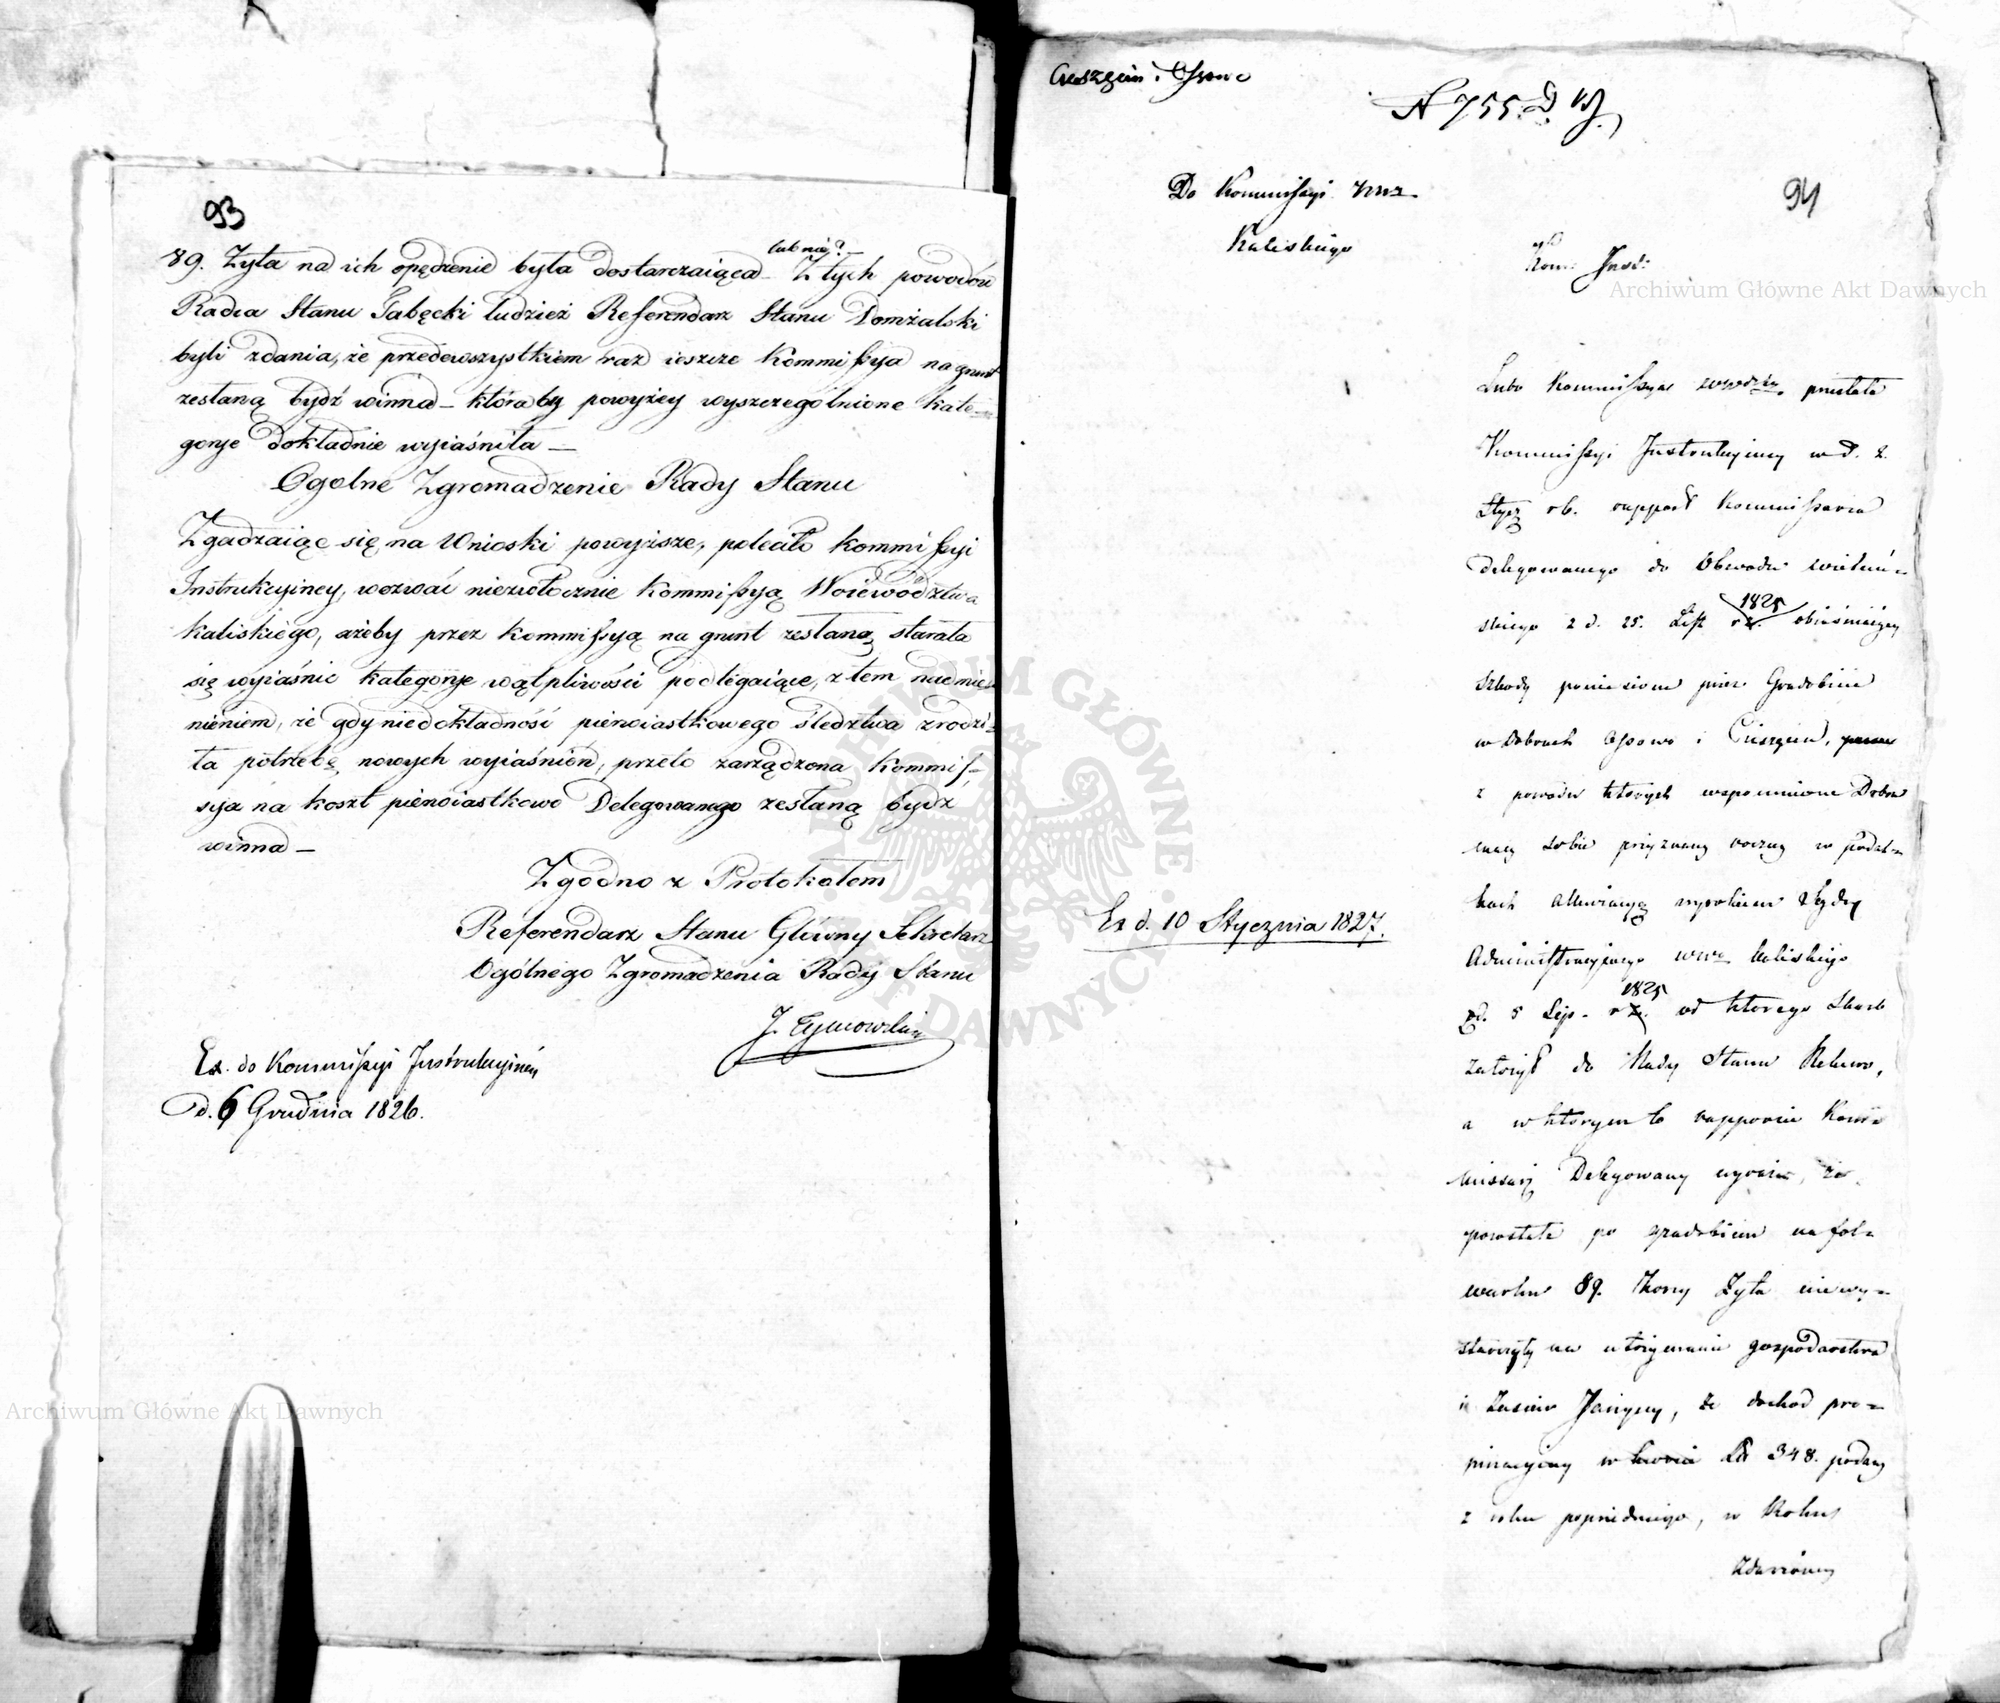 93
lub nie?
89. Zyta na ich opędzenie była dostarczaiąca Z tych powodów
Radca Stanu Gabęcki tudzież Referendarz Stanu Domżalski
byli zdania, że przedewszystkiem raz ieszcze Kommissya na grunt
zesłaną bydź winna – któraby powyżey wyszczegolnione kate-
gorye dokładnie wyiaśniła —
Ogolne Zgromadzenie Rady Stanu
Zgadzaiąc się na Wnioski powyższe, poleciło Kommissyi
Instrukcyiney, wezwać niezwłocznie Kommissyą Woiewództwa
Kaliskiego, ażeby przez Kommissyą na grunt zesłaną, starała
się wyiaśnić kategorye wątpliwości podlegaiące, z tem nadmie-
nieniem, że gdy niedokładność pierwiastkowego śledztwa zrodzi-
ła potrzebę nowych wyiaśnień, przeto zarządzona Kommis-
sya na koszt pierwiastkowo Delegowanego zesłaną bydź
winna —
Zgodno z Protokołem
Referendarz Stanu Główny Sekretarz
Ogólnego Zgromadzenia Rady Stanu
J. Tymowski
Ex. do Kommissyi Instrukcyiney
d. 6 Grudnia 1826.
Cieszęcin i Osowo
N 755. D. W.
94
Do Kommissyi Wwa
Kaliskiego
Kom: Inst:
Lubo Kommissya przesłała
Kommissyi Instrukcyiney w d. 2.
Stycz rb. rapport Kommissarza
Delegowanego do Obwodu wieluń-
1825
skiego z d. 25. List obiaśniaiący
szkody poniesione przez Gradobicie
w Dobrach Osowo i Cieszęcin,
z powodu których wspomnione Dobra
maią sobie przyznaną w podat-
kach allewiacyą wyrokiem Sądu
Administracyinego wwa Kaliskiego
1825
zd. 5 Lip. od którego Skarb
założył do Rady Stanu Rekurs,
a w którym to rapporcie Kom-
missarz Delegowany wyraża, że
pozostałe po gradobiciu na fol-
warku 89. Kory Zyta niewy-
starczyły na utrzymanie gospodarstwa
i Zasiew Jarzyny, że dochod pro-
pinacyiny w Zł 348. podany
z roku poprzedniego, w Roku
zdarzoney
Ex d. 10 Stycznia 1827.
Archiwum Główne Akt Dawnych
Archiwum Główne Akt Dawnych
ARCHIWUM GŁÓWNE AKT DAWNYCH